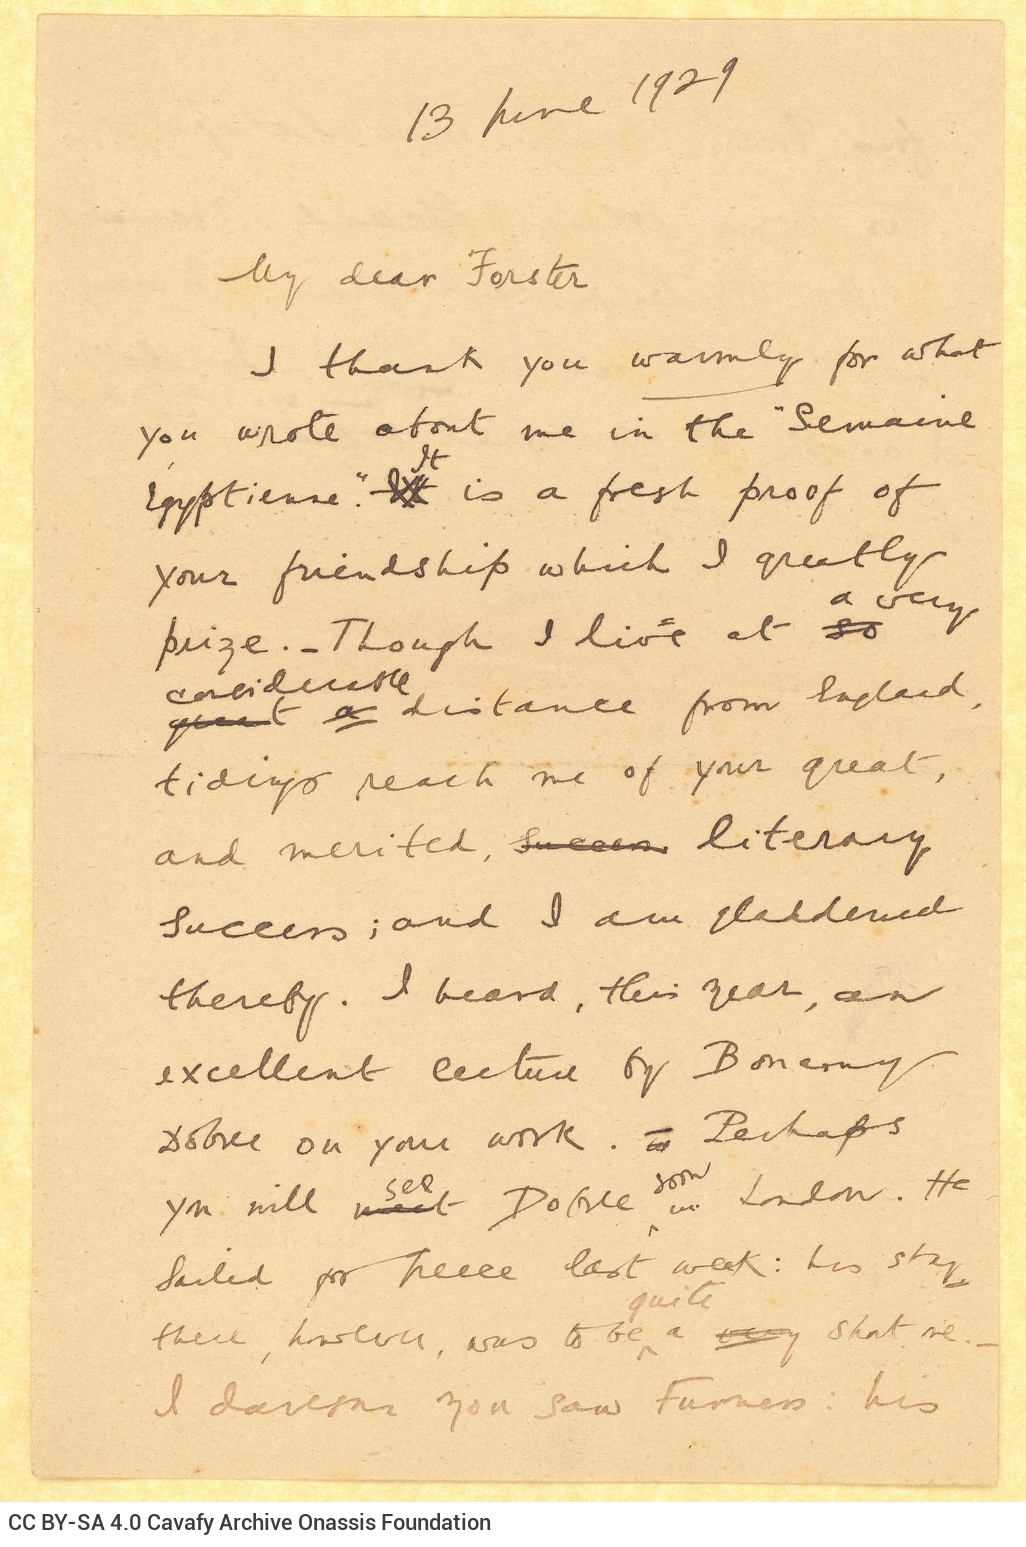 13 June 1929
My dear Forster
I thank you warmly for what
you wrote about me in the "Semaine
Egyptienne". It It is a fresh proof of
your friendship which I greatly
prize. – Though I live at so a very
great a considerable distance from England,
tidings reach me of your great,
and merited, success literary
success; and I am gladdened
thereby. I heard, this year, an
excellent lecture by Bonamy
Dobree on your work. Perhaps
you will meet see Dobree soon in London. He
sailed for Greece last week: his stay
there, however, was to be quite a very short one. –
I daresay you saw Furness: his
CC BY-SA 4.0 Cavafy Archive Onassis Foundation